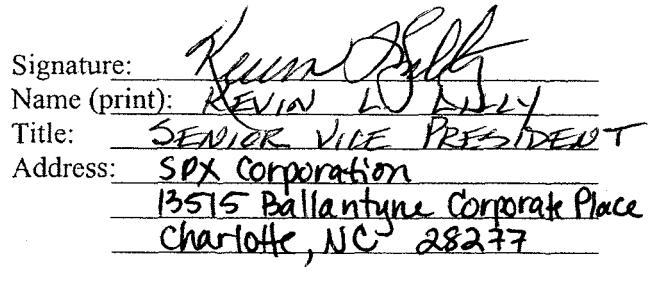 Signature: Kevin L Lilly
Name (print): KEVIN L LILLY
Title: SENIOR VICE PRESIDENT
Address: SPX Corporation
13515 Ballantyne Corporate Place
Charlotte, NC 28277